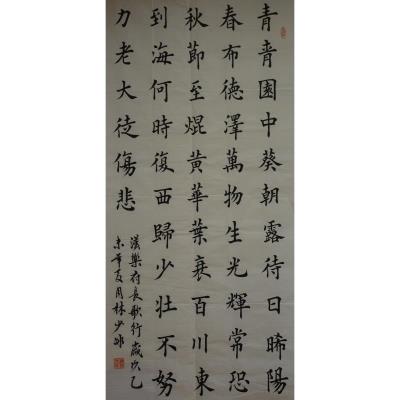 青青園中葵朝露待日晞陽
春布德澤萬物生光輝常恐
秋節至焜黃華葉衰百川東
到海何時復西歸少壯不努
力老大徒傷悲
漢樂府長歌行歲次乙
未年夏月林少